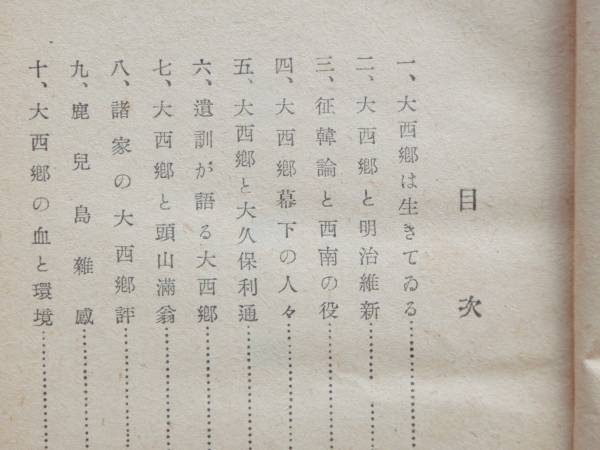 目次
一、大西鄉は生きてゐる
二、大西鄉と明治維新
三、征韓論と西南の役
四、大西鄉幕下の人々
五、大西鄉と大久保利通
六、遺訓が語る大西鄉
七、大西鄉と頭山滿翁
八、諸家の大西鄉評
九、鹿兒島雜感
十、大西鄉の血と環境